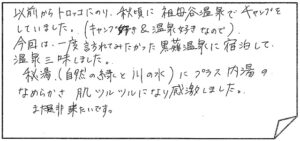 以前からトロッコにのり、秋頃に祖母谷温泉でキャンプを
していました。(キャンプ好き&温泉好きなので)
今回は、一度訪れてみたかった黒薙温泉に宿泊して、
温泉三昧しました。
秘湯、(自然の緑と川の水)にプラス内湯の
なめらかさ 肌ツルツルになり感激しました。
また是非来たいです。